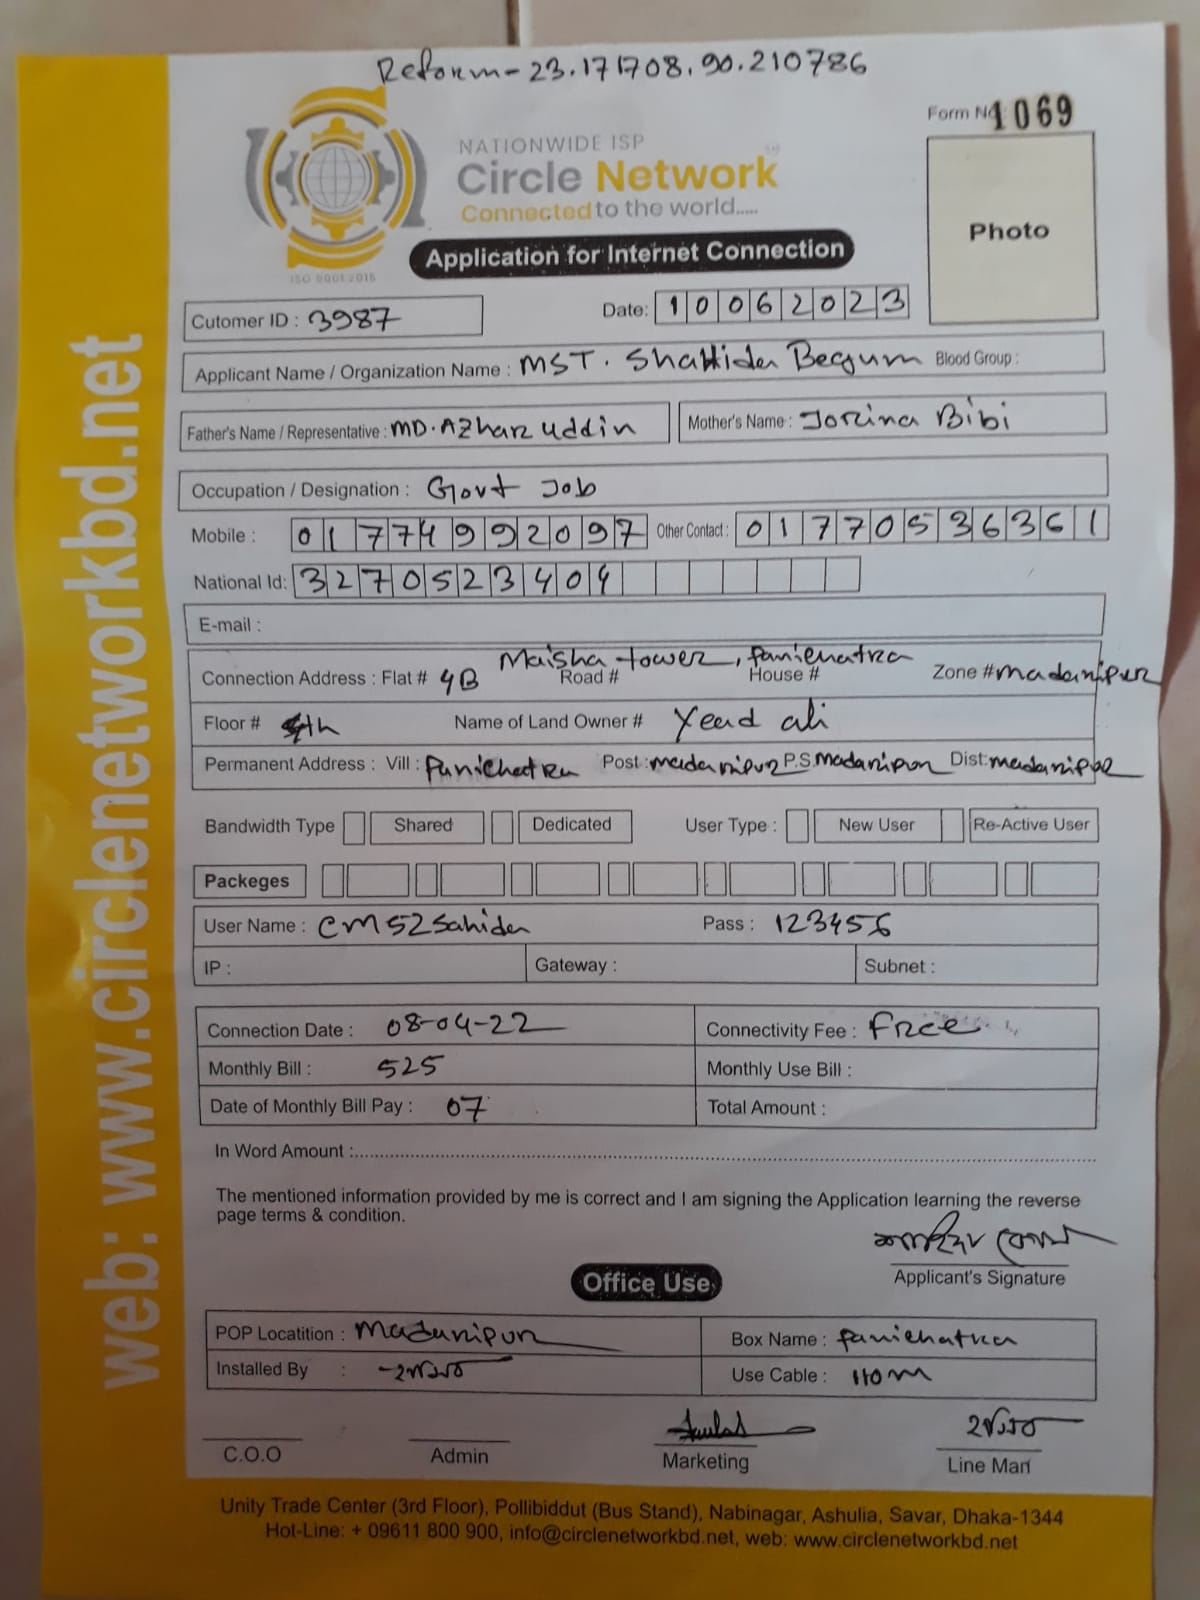 Reform-23.171708.90.210786
Form No 1069
NATIONWIDE ISP
Circle Network
Connected to the world.....
ISO 9001:2015
Photo
Application for Internet Connection
Cutomer ID : 3987
Date: 10062023
Applicant Name / Organization Name : MST. Shahida Begum Blood Group :
Father's Name / Representative : MD. Azhar uddin Mother's Name : Jorina Bibi
Occupation / Designation : Govt Job
Mobile : 01774992097 Other Contact : 01770536361
National Id: 3270523404
E-mail :
Maisha tower, Panichatra
Connection Address : Flat # 4B Road # House # Zone # madaripur
Floor # 4th Name of Land Owner # Yead ali
Permanent Address : Vill : Panichatra Post : madaripur P.S. Madaripur Dist: madaripur
Bandwidth Type Shared Dedicated User Type : New User Re-Active User
Packeges
User Name : CM52Sahida Pass : 123456
IP : Gateway : Subnet :
Connection Date : 08-04-22 Connectivity Fee : Free
Monthly Bill : 525 Monthly Use Bill :
Date of Monthly Bill Pay : 07 Total Amount :
In Word Amount :
The mentioned information provided by me is correct and I am signing the Application learning the reverse
page terms & condition.
Applicant's Signature
Office Use
POP Locatition : Madaripur Box Name : Panichatra
Installed By : Use Cable : 110m
C.O.O Admin Marketing Line Man
Unity Trade Center (3rd Floor), Pollibiddut (Bus Stand), Nabinagar, Ashulia, Savar, Dhaka-1344
Hot-Line: + 09611 800 900, info@circlenetworkbd.net, web: www.circlenetworkbd.net
web: www.circlenetworkbd.net